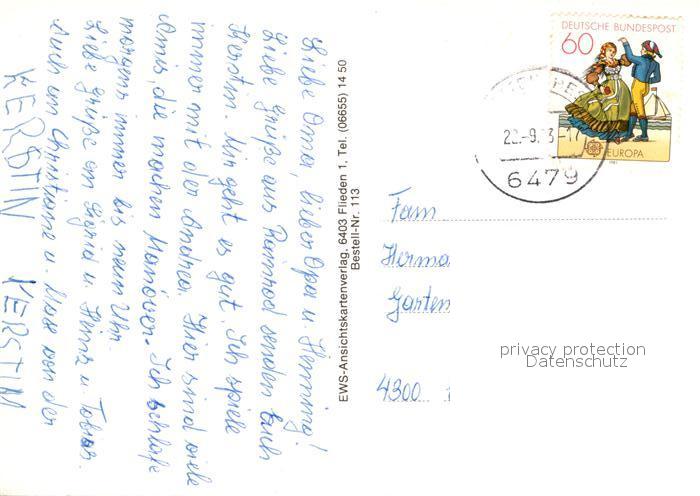 Liebe Oma, lieber Opa u. Henning!
Liebe Grüße aus Rainrod senden Euch
Kerstin. Mir geht es gut. Ich spiele
immer mit der Andrea. Hier sind viele
Amis, die machen Manöver. Ich schlafe
morgens immer bis neun Uhr.
Liebe Grüße an Sigrid u. Heinz u. Tobias.
Auch an Christiane u. Maxe von der
KERSTIN KERSTIN
EWS-Ansichtskartenverlag, 6403 Flieden 1, Tel. (06655) 14 50
Bestell-Nr. 113
DEUTSCHE BUNDESPOST
60
EUROPA
1981
22.-9. 3-17
6479
Fam
Herma
Garten
4300
privacy protection
Datenschutz